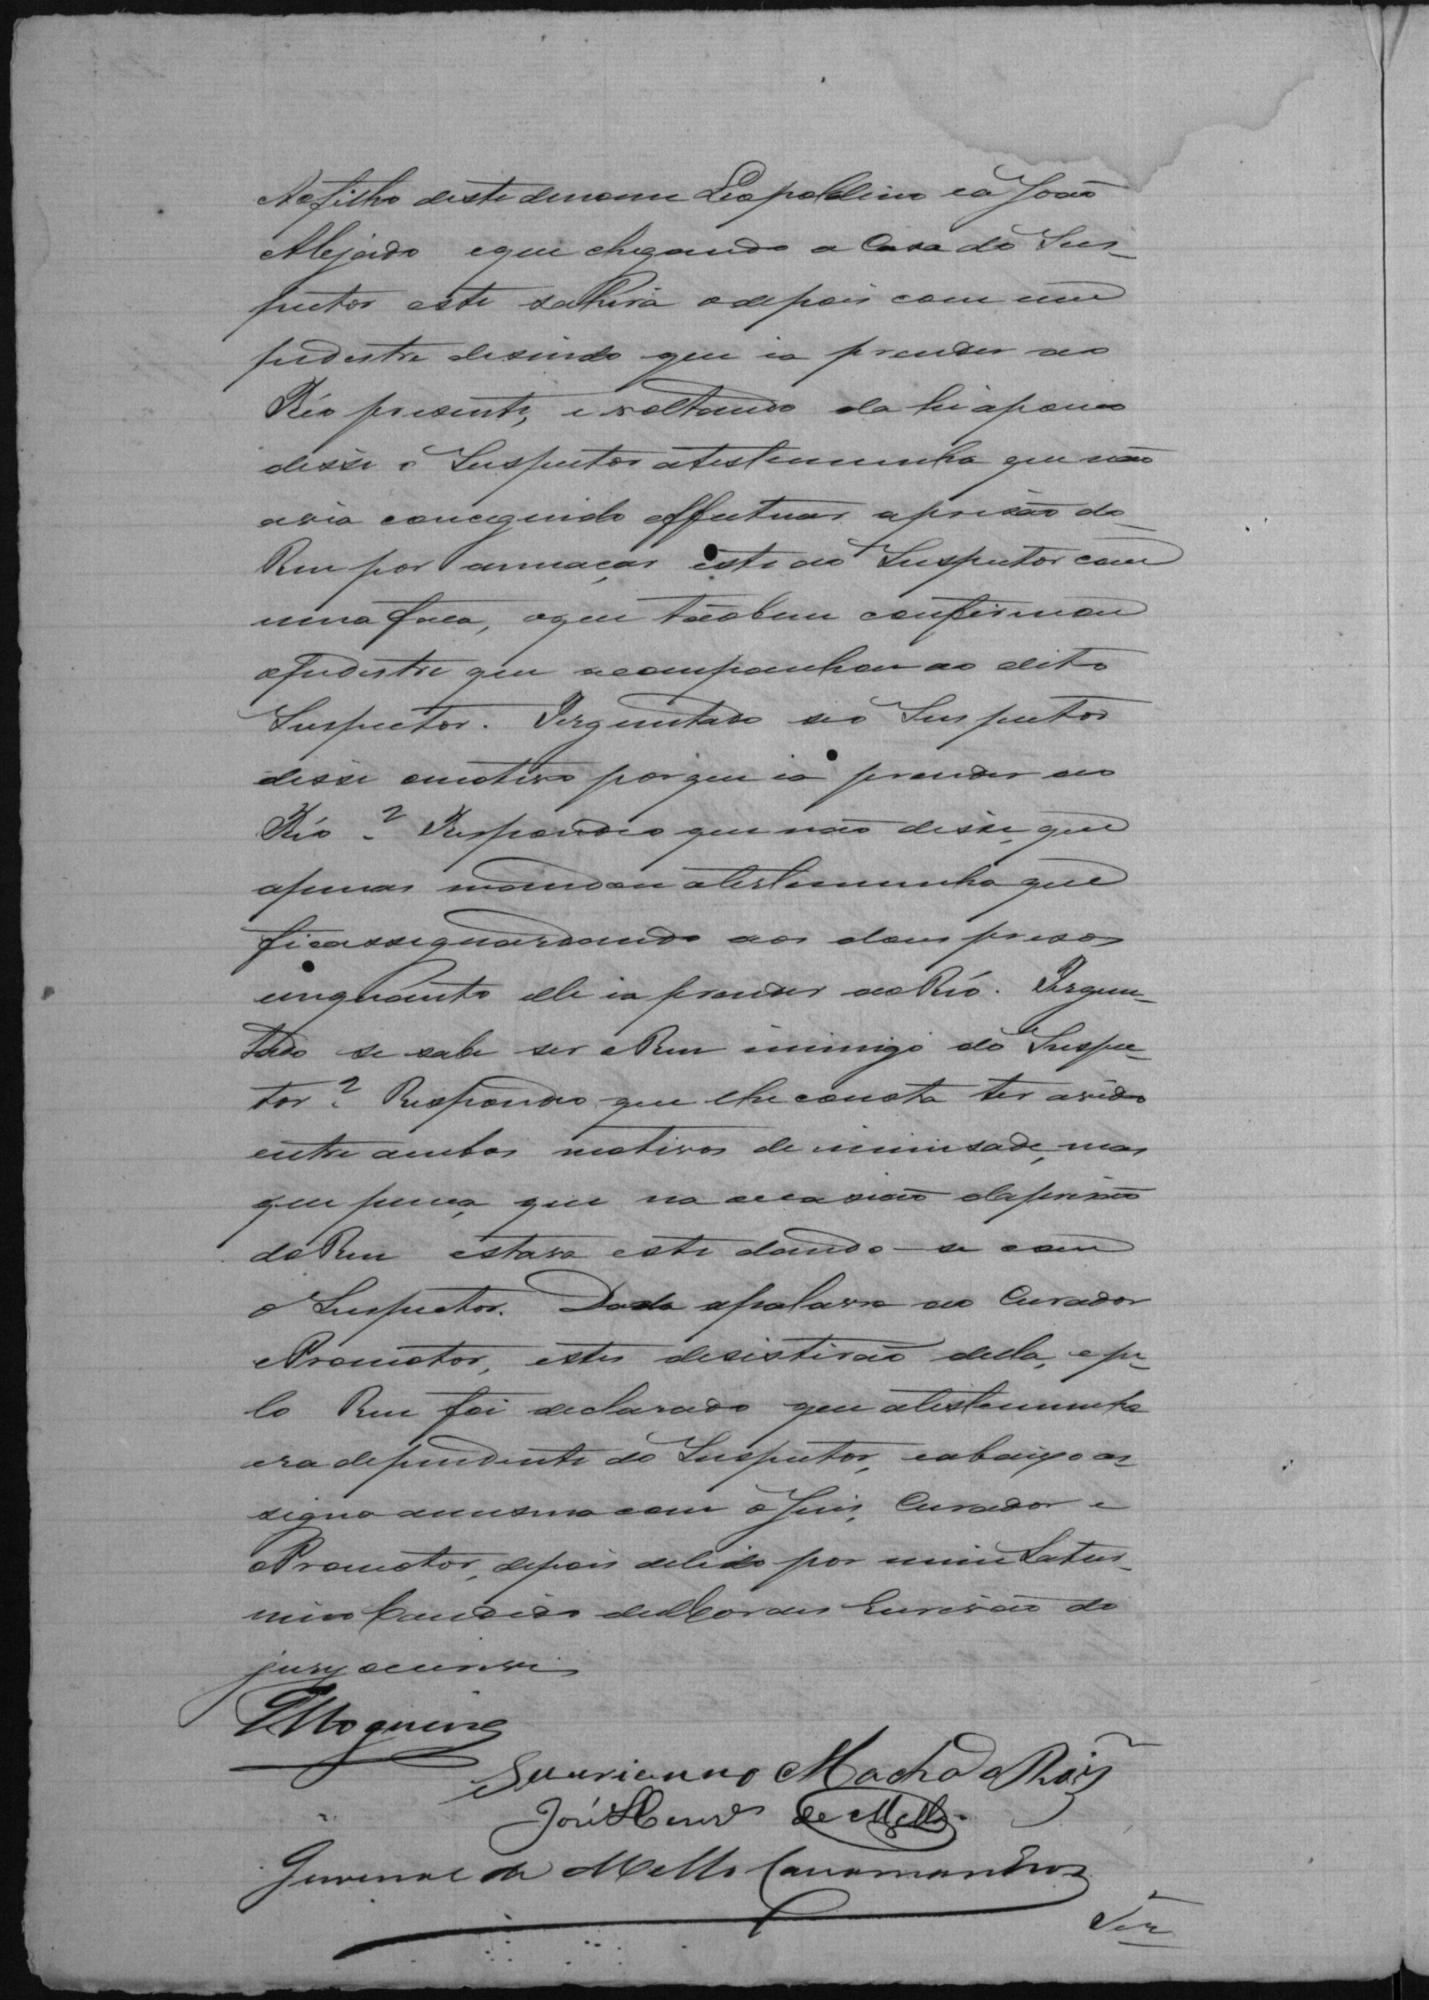 Aofilho deste denome Leopoldino eá João
Alejado eque chegando a Casa do Ins-
pector este sahira edepois com um
pedestre disindo que ia prender ao
Réo presente, e voltando da hi apouco
disse o Inspector atestemunha que não
avia conceguido effectuar aprisão do
Reu por ameaçar este ao Inspector com
uma faca, oque tãobem confirmou
opedestre que acompanhou ao dito
Inspector. Perguntado seo Inspector
disse omotivo porque ia prender ao
Réo? Respondeo que não disse, que
apenas mandou atestemunha que
ficasseguardando aos dous presos
enquanto elle ia prender aoRéo. Pergun-
tado se sabe ser oReu inimigo do Inspec-
tor? Respondeo que lhe consta ter avido
entre ambos motivos de inimisade, mas
que pença que na occasião daprisão
doReu estava este dando-se com
o Inspector. Dada apalavra ao Curador
ePromotor, estes desistirão della, epe-
lo Reu foi declarado que atestemunha
era dependente do Inspector, eabaixo as-
signa amesma com o Juis, Curador e
ePromotor, depois delido por mim Satur-
nino Candido deMoraes Escrivão do
jury oescrevi
Severianno Machado
José de Mello
Juvenal de Mello